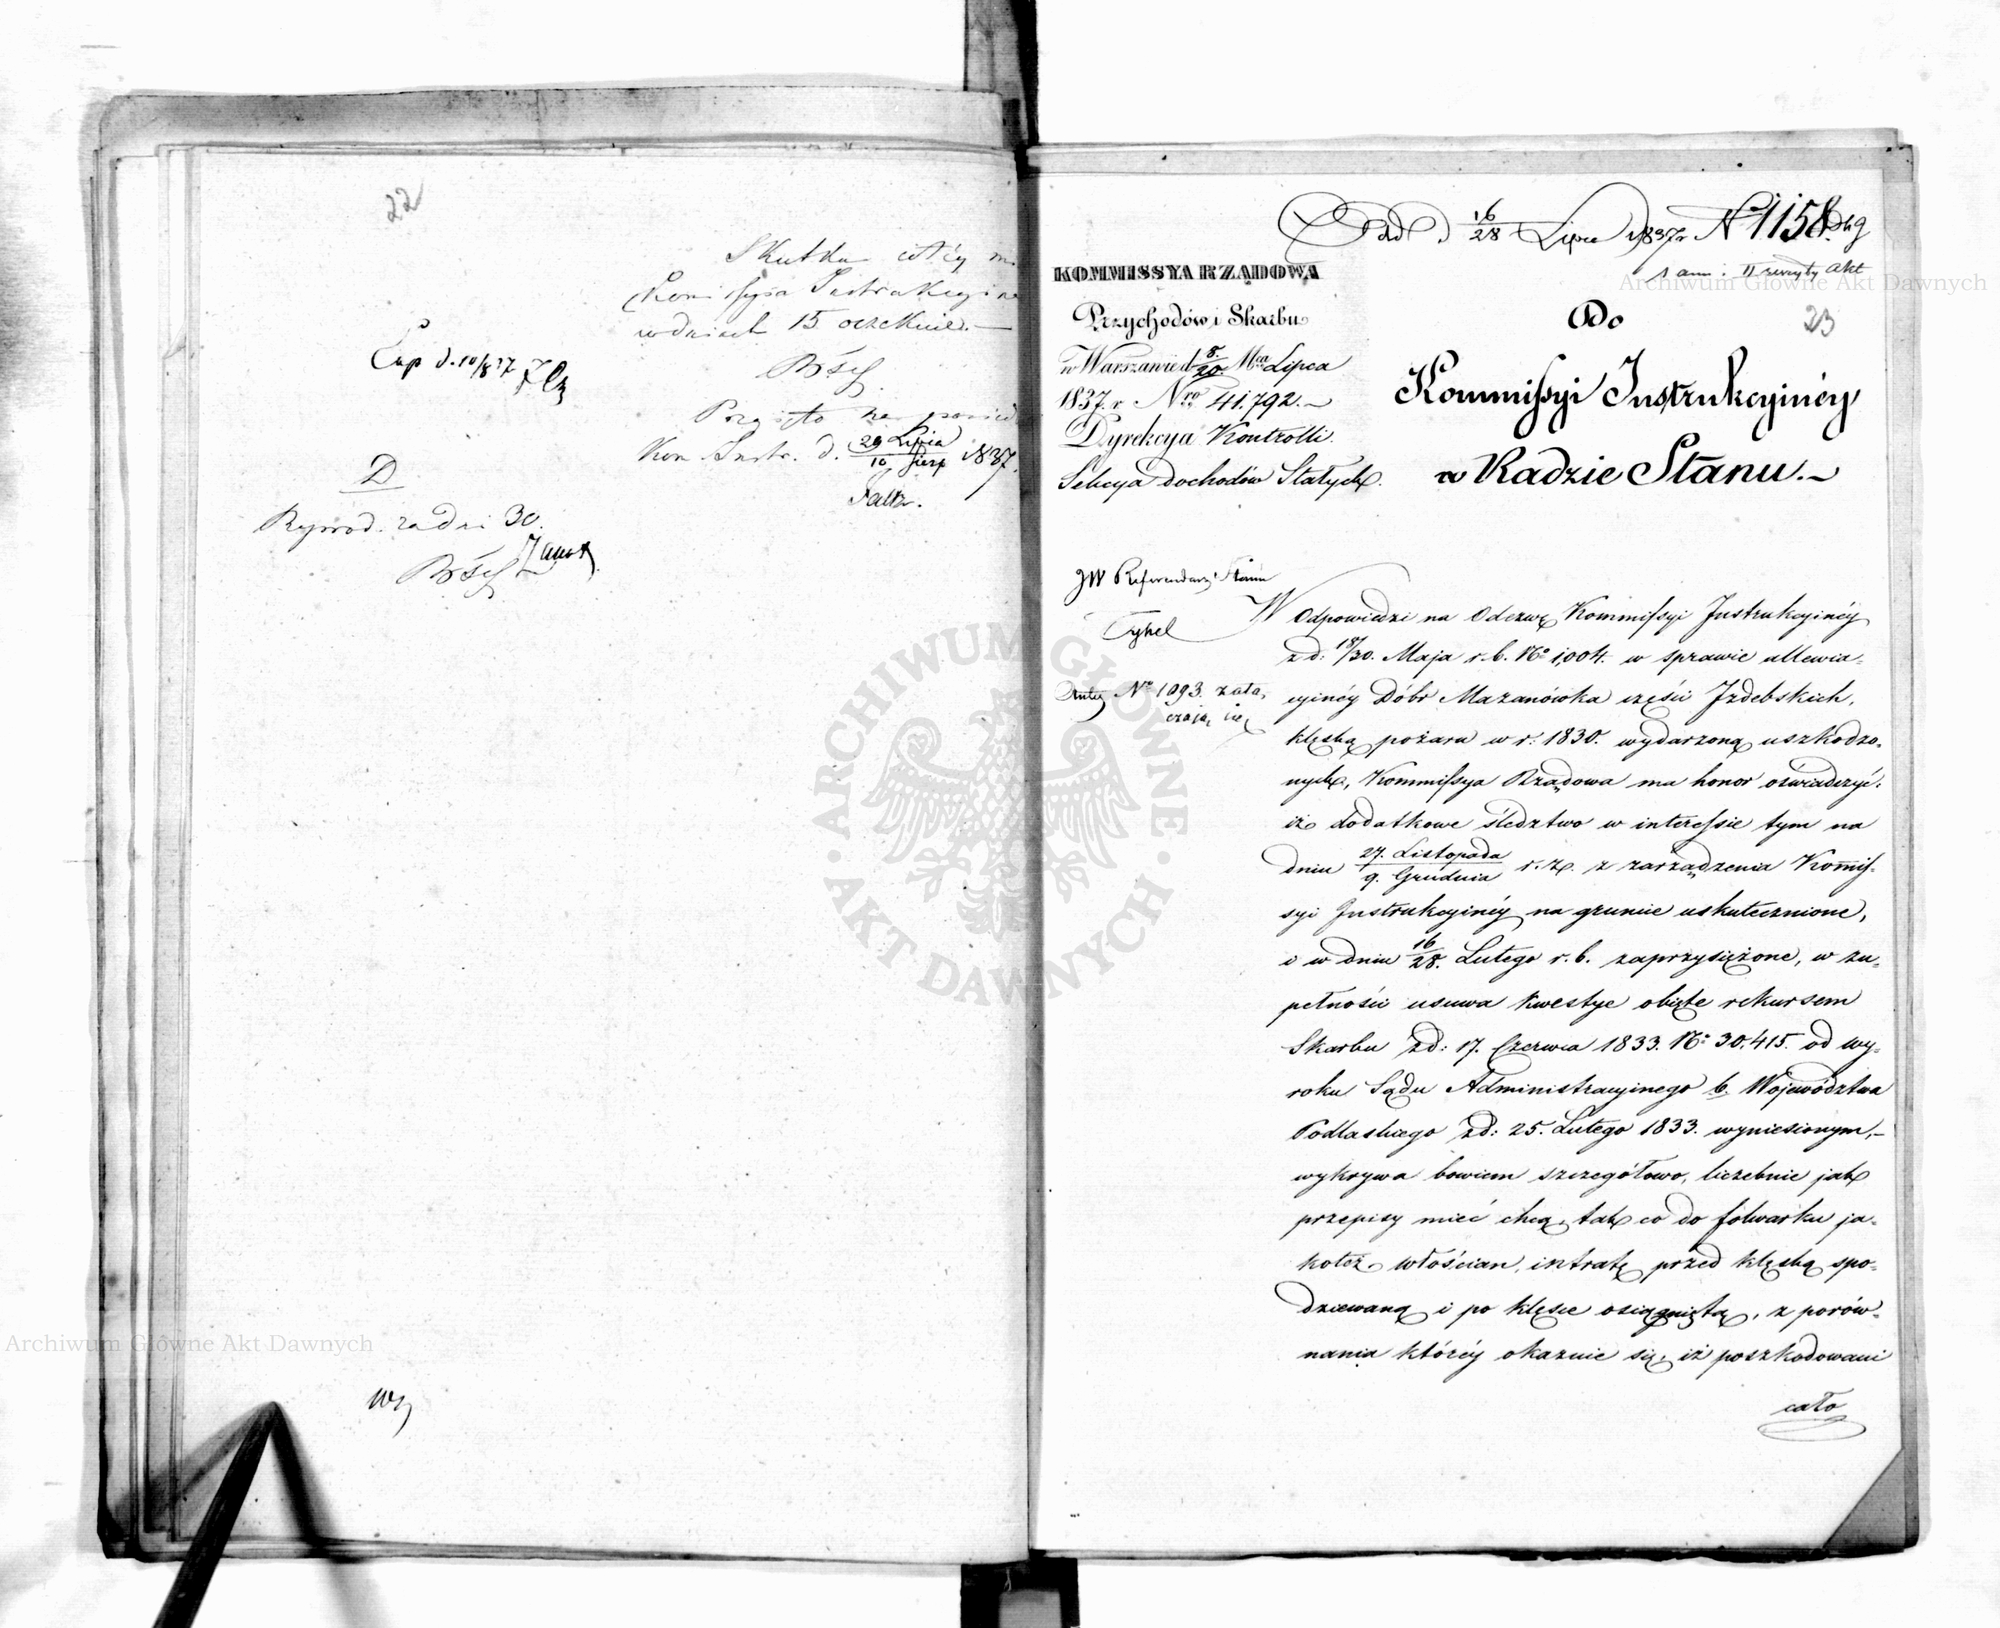 22
Skutku
Kommissya Instrukcyina
w dniach 15 oczekuie.
Exp d. 10/8 37
Przyięto na posied
Kom. Instr. d. 29 Lipca / 10 Sierp 1837.
D
Reprod. za dni 30.
Pad d 16/28 Lipca 1837 r N 1158
1 ann: II zeszyty akt
23
KOMMISSYA RZĄDOWA
Przychodów i Skarbu
w Warszawie d 8./20. Mca Lipca
1837. r Nro 41,792.
Dyrekcya Kontrolli.
Sekcya dochodów Stałych.
Do
Kommissyi Instrukcyinéy
w Radzie Stanu.
JW Referendarz Stanu
Antea Nr 1093. zała,
czaią się
W Odpowiedzi na Odezwę Kommissyi Instrukcyinéy
z d: 18/30. Maja r. b. No 1,004. w sprawie allewia-
cyinéy Dóbr Mazanówka części Izdebskich,
klęską pożaru w r: 1830. wydarzoną uszkodzo-
nych, Kommissya Rządowa ma honor oświadczyć:
iż dodatkowe śledztwo w interessie tym na
dniu 27. Listopada / 9. Grudnia r. z. z zarządzenia Kommis-
syi Instrukcyinéy na gruncie uskutecznione,
i w dniu 16/28. Lutego r. b. zaprzysiężone, w zu-
pełności usuwa kwestye obięte rekursem
Skarbu z d: 17. Czerwca 1833. No 30,415. od wy-
roku Sądu Administracyinego b. Województwa
Podlaskiego z d: 25. Lutego 1833. wyniesionym,
wykrywa bowiem szczegółowo, liczebnie jak
przepisy mieć chcą, tak co do folwarku ja-
koteż włościan, intratę przed klęską spo-
dziewaną i po klęsce osiągniętą, z porów-
nania któréy okazuie się, iż poszkodowani
cało
ARCHIWUM GŁÓWNE
AKT DAWNYCH
Archiwum Główne Akt Dawnych
Archiwum Główne Akt Dawnych